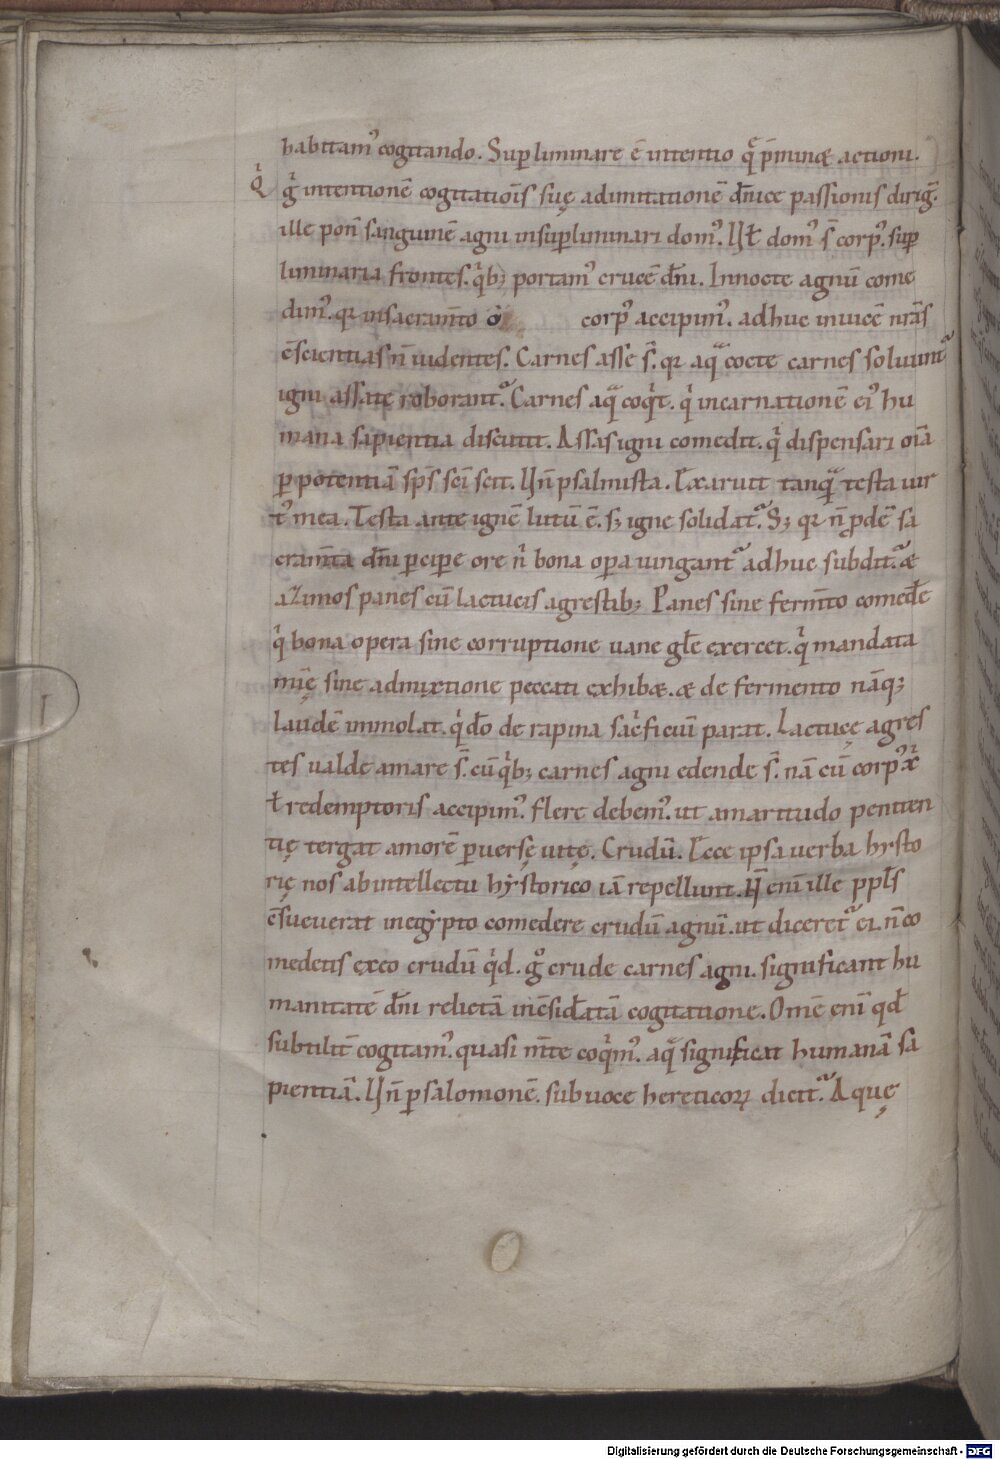 habitam᾽ cogitando. Sup liminare ē intentio q̄ p̄minet actioni.
Q̇ ġ intentionē cogitatiōis suę ad imitationē dn̄ice passionis diriḡ.
ille pon̄ sanguinē agni in sup liminari dom᾽. Ul̄ dom᾽ s̄ corp᾽. sup
liminaria frontes. q̇b; portam᾽ crucē dn̄i. In nocte agnū come
dim᾽. qr in sacram̄to d̄ corp᾽ accipim᾽. adhuc inuicē nr̄as
c̄scientias n̄ uidentes. Carnes asse s̄. qr aq̄ cocte carnes soluunt᾽
igni assate roborant᾽. Carnes aq̄ coq̇t. q̇ incarnationē ei᾽ hu
mana sapientia discutit. Assas igni comedit. q̇ dispensari oīa
p potentiā sp̄s sc̄i scit. Un̄ psalmista. Exaruit tanquā testa uir
t᾽ mea. Testa ante ignē lutū ē. s; igne solidat᾽. S; qr n̄ pdē sa
cram̄ta dn̄i pcipe ore n̄ bona opa iungant᾽ adhuc subdit᾽. et
azimos panes cū lactucis agrestib; Panes sine ferm̄to comedt̄
q̇ bona opera sine corruptione uane gl̄e exercet. q̇ mandata
mīę sine admixtione peccati exhibet. et de fermento nāq;
laudē immolat. q̇ dō de rapina sac̊ficiū parat. Lactucę agres
tes ualde amare s̄. cū q̇b; carnes agni edende s̄. nā cū corp᾽ xr̄
t̄ redemptoris accipim᾽. flere debem᾽. ut amaritudo peniten
tię tergat amorē puersę uitę. Crudū. Ecce ipsa uerba hysto
rię nos ab intellectu hystorico iā repellunt. N̄ eni ille ppl̄s
c̄sueuerat in egypto comedere crudū agnū. ut diceret᾽ ei. n̄ co
medetis ex eo crudū q̇d. g̊ crude carnes agni. significant hu
manitatē dn̄i relictā in c̄sid̄atā cogitatione. Omē enī qd̄
subtilit̄ cogitam᾽. quasi m̄te coq̇m᾽. aq̄ significat humanā sa
pientiā. Un̄ p salomonē. sub uoce hereticoꝝ dicit᾽. Aquę
Digitalisierung gefördert durch die Deutsche Forschungsgemeinschaft - DFG